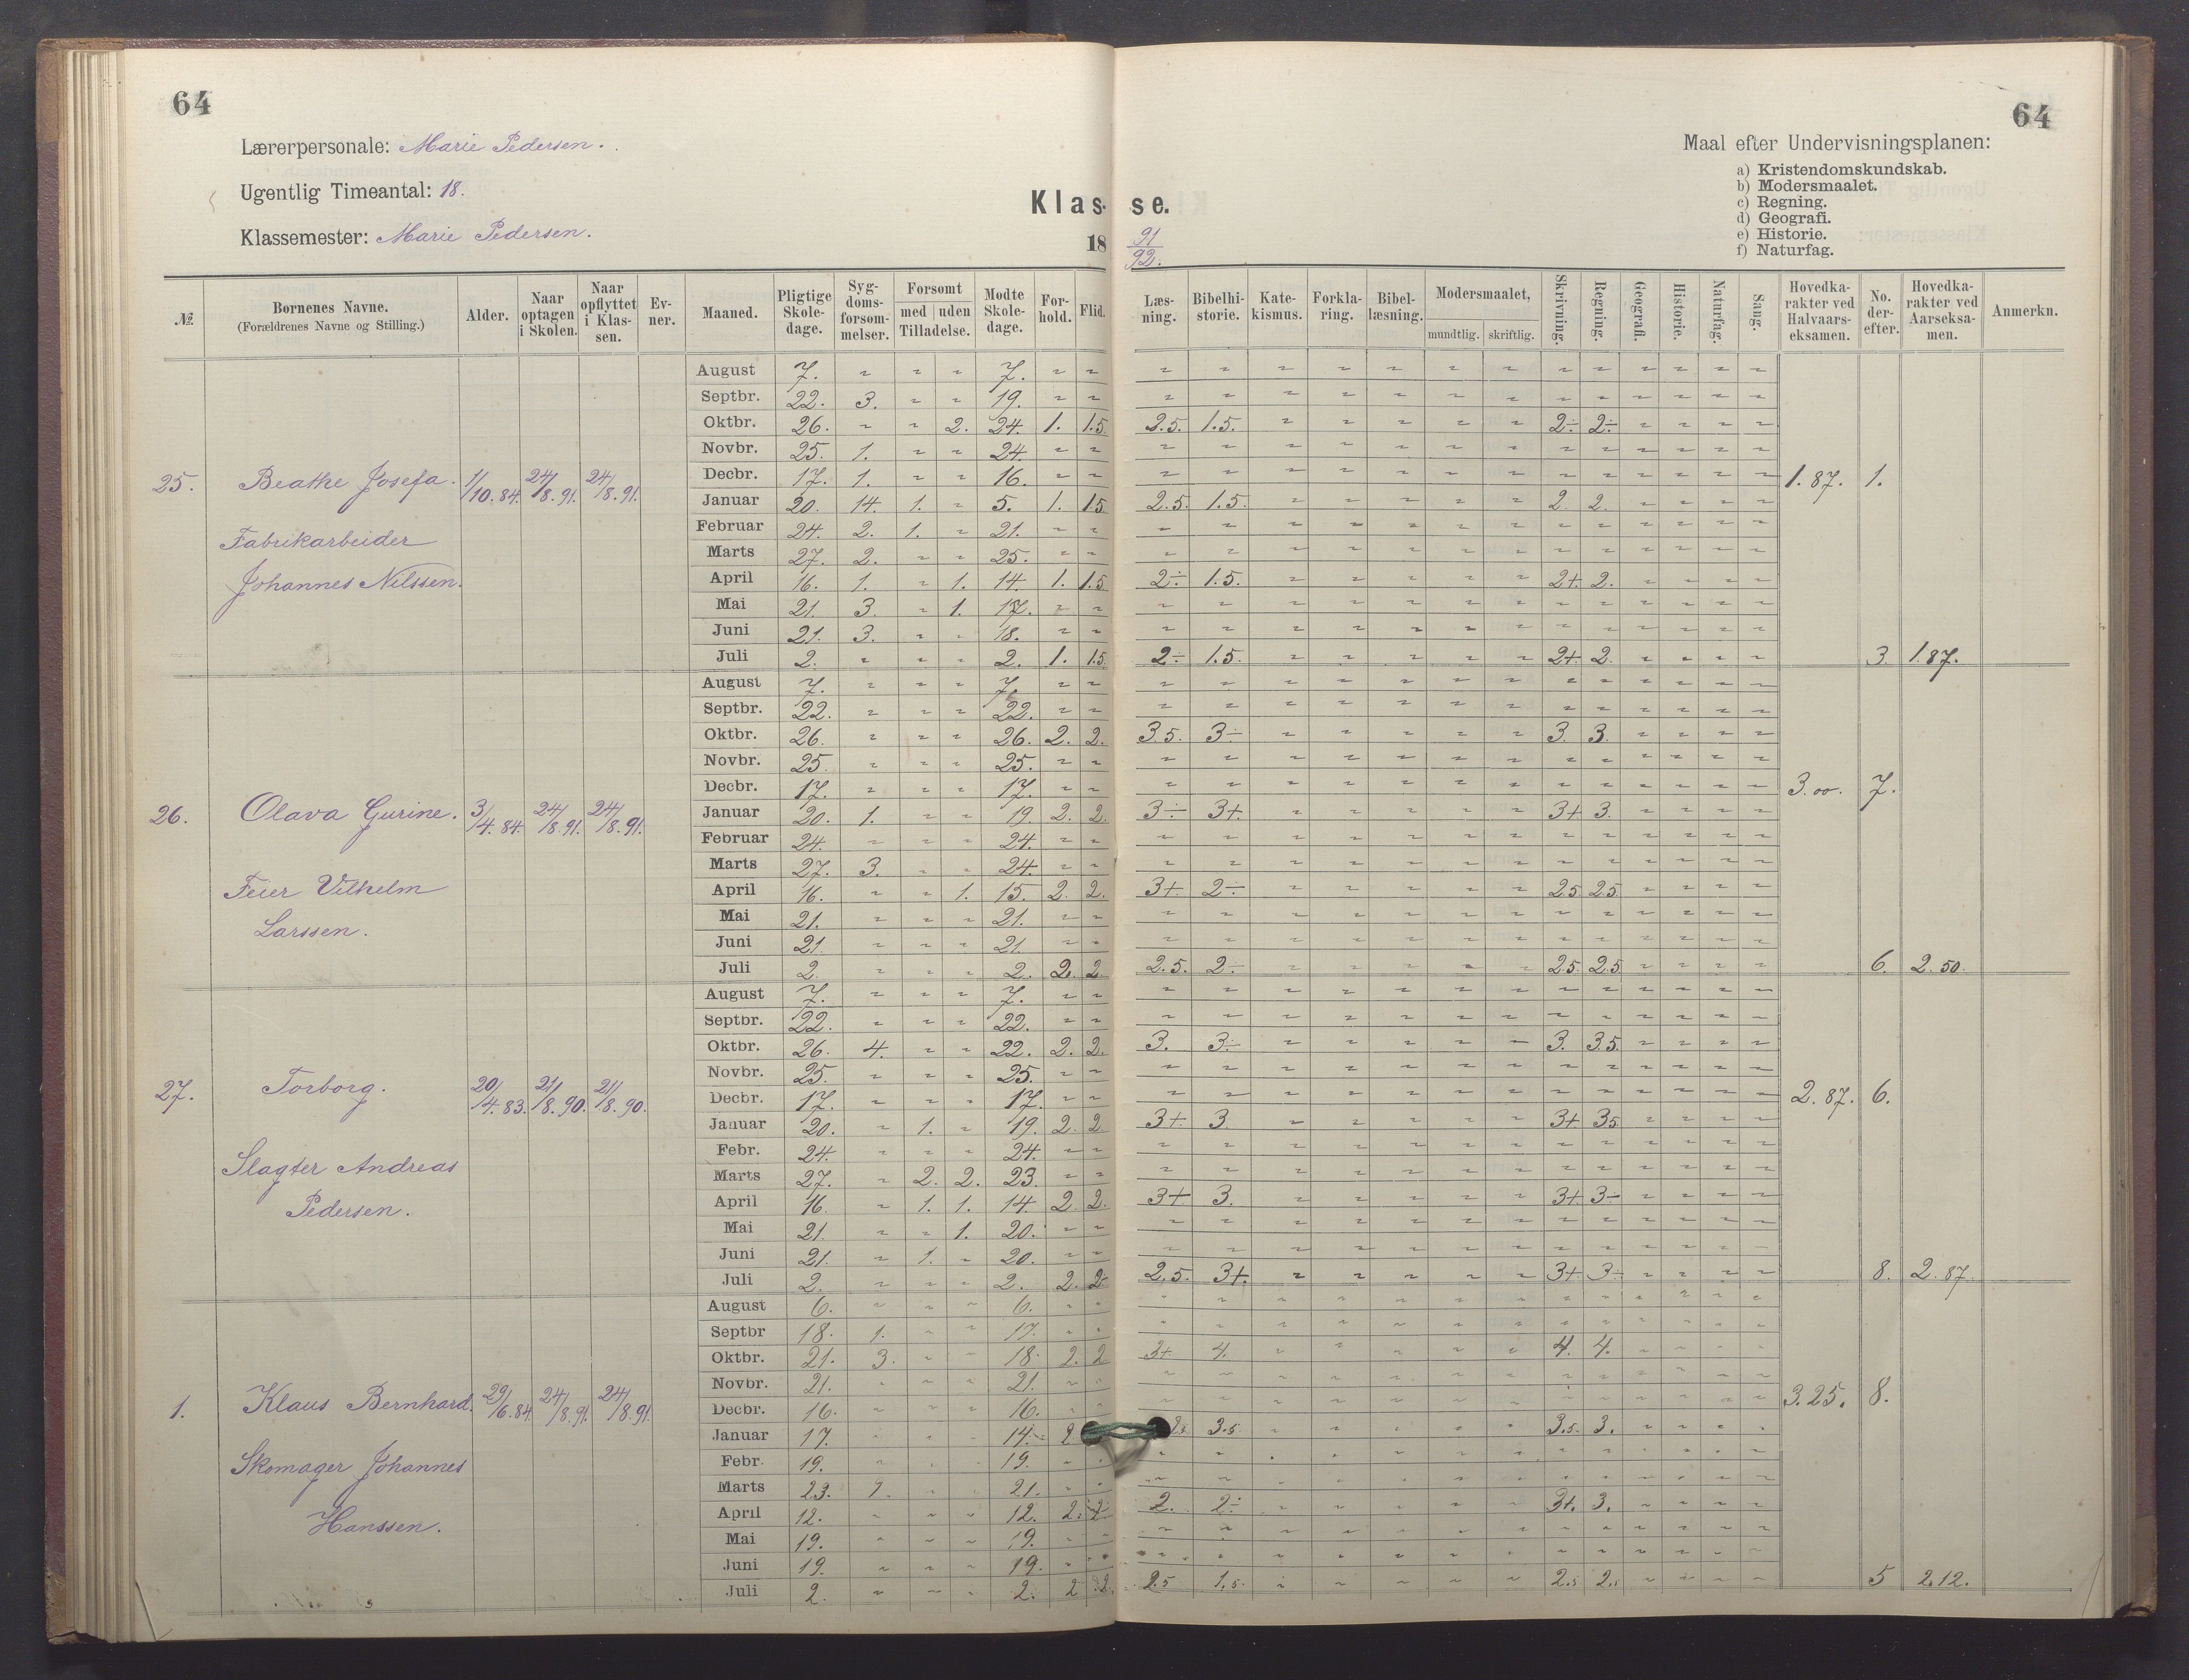 64
64
Lærerpersonale: Marie Pedersen.
Ugentlig Timeantal: 18.
Klassemester: Marie Pedersen.
Klasse.
18 91/92.
Maal efter Undervisningsplanen:
a) Kristendomskundskab.
b) Modersmaalet.
c) Regning.
d) Geografi.
e) Historie.
f) Naturfag.
№. | Børnenes Navne. (Forældrenes Navne og Stilling.) | Alder. | Naar optagen i Skolen. | Naar opflyttet i Klassen. | Evner. | Maaned. | Pligtige Skoledage. | Sygdomsforsommelser. | Forsømt med uden Tilladelse. | Mødte Skoledage. | Forhold. | Flid. | Læsning. | Bibelhistorie. | Katekismus. | Forklaring. | Bibellæsning. | Modersmaalet, mundtlig. skriftlig. | Skrivning. | Regning. | Geografi. | Historie. | Naturfag. | Sang. | Hovedkarakter ved Halvaarseksamen. | No. derefter. | Hovedkarakter ved Aarseksamen. | Anmerkn.
25. Beathe Josefa. 1/10.84. 24/8.91. 24/8.91. 1.87. 1.
Fabrikarbeider
Johannes Nilssen.
August 7. 7.
Septbr. 22. 3. 19.
Oktbr. 26. 2. 24. 1. 1.5. 2.5. 1.5. 2÷ 2÷
Novbr. 25. 1. 24.
Decbr. 17. 1. 16.
Januar 20. 14. 1. 5. 1. 1.5 2.5. 1.5. 2. 2.
Februar 24. 2. 1. 21.
Marts 27. 2. 25.
April 16. 1. 1. 14. 1. 1.5 2÷ 1.5. 2+. 2.
Mai 21. 3. 1. 17.
Juni 21. 3. 18.
Juli 2. 2. 1. 1.5. 2÷ 1.5. 2+. 2. 3. 1.87.
26. Olava Gurine. 3/4.84. 24/8.91. 24/8.91. 3.00. 7.
Feier Vilhelm
Larssen.
August 7. 7.
Septbr. 22. 22.
Oktbr. 26. 26. 2. 2. 3.5. 3÷ 3. 3.
Novbr. 25. 25.
Decbr. 17. 17.
Januar 20. 1. 19. 2. 2. 3÷ 3+. 3+ 3.
Februar 24. 24.
Marts 27. 3. 24.
April 16. 1. 15. 2. 2. 3+. 2÷ 2.5. 2.5.
Mai 21. 21.
Juni 21 21.
Juli 2. 2. 2. 2 2.5. 2÷ 2.5. 2.5. 6. 2.50.
27. Torborg. 20/4.83. 21/8.90. 21/8.90. 2.87. 6.
Slagter Andreas
Pedersen.
August 7. 7.
Septbr. 22. 22.
Oktbr. 26. 4. 22. 2. 2. 3. 3÷ 3. 3.5.
Novbr. 25. 25.
Decbr. 17. 17.
Januar 20. 1. 19. 2. 2 3+. 3. 3+ 3.5
Febr. 24. 24.
Marts 27. 2. 2. 23.
April 16. 1. 1. 14. 2. 2. 3+ 3. 3+. 3÷
Mai 21. 1. 20.
Juni 21. 1. 20.
Juli 2. 2. 2. 2. 2.5. 3+. 3+. 3÷ 8. 2.87.
1. Klaus Bernhard. 29/6.84. 24/8.91. 24/8.91. 3.25. 8.
Skomager Johannes
Hanssen.
August 6. 6.
Septbr 18. 1. 17.
Oktbr. 21. 3. 18. 2. 2 3+ 4. 4. 4.
Novbr. 21. 21.
Decbr. 16. 16.
Januar 17. 14. 2 3.5 3.5. 3.
Febr. 19. 19
Marts 23. 21.
April 12. 12. 2. 2 2. 2÷ 3+. 3.
Mai 19. 19.
Juni 19. 19.
Juli 2. 2. 2 2. 2.5 1.5. 2.5 5 2.12.